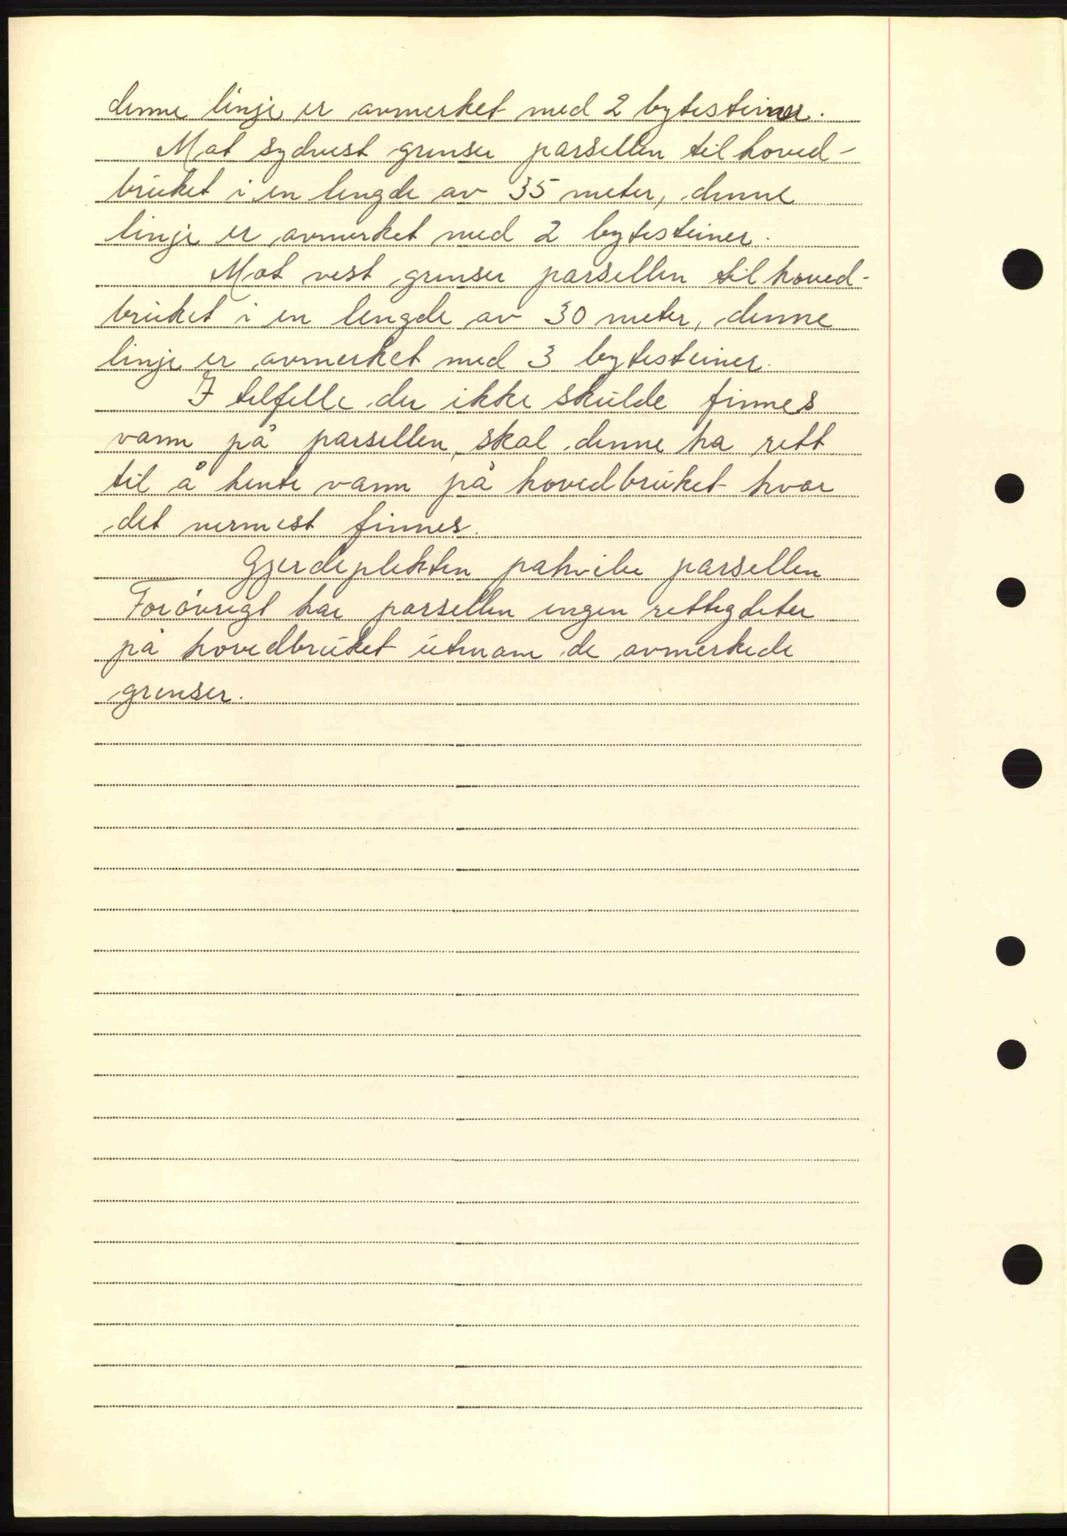 denne linje er avmerket med 2 bytesteiner.
Mot sydvest grenser parsellen til hoved-
brüket i en lengde av 35 meter, denne
linje er avmerket med 2 bytesteiner.
Mot vest grenser parsellen til hoved-
brüket i en lengde av 30 meter, denne
linje er avmerket med 3 bytesteiner.
I tilfelle der ikke skulde finnes
vann på parsellen, skal denne ha rett
til å hente vann på hovedbrüket hvor
det nermest finnes.
Gjerdeplikten påhviler parsellen
Forøvrigt har parsellen ingen rettigheter
på hovedbrüket utenom de avmerkede
grenser.